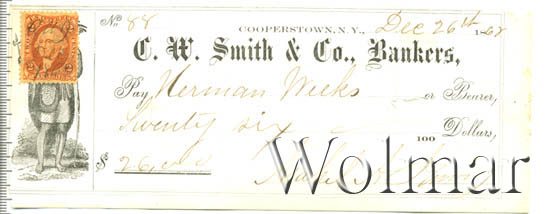 No. 88
COOPERSTOWN, N.Y., Dec 26th 1868
C. W. Smith & Co., Bankers,
Pay Herman Weeks or Bearer,
Twenty six 100 Dollars,
$ 26,00
Wolmar